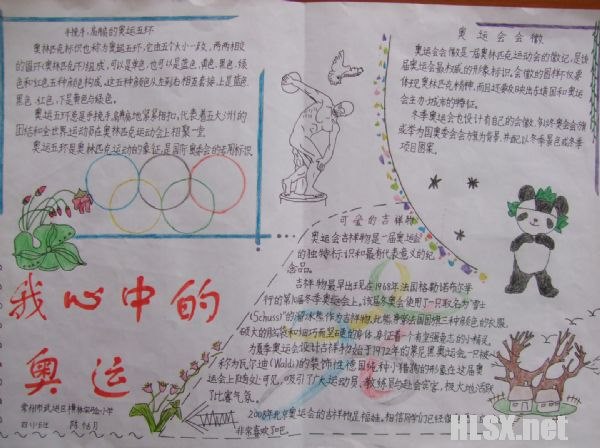 手挽手、肩膀的奥运五环
奥林匹克标识也称为奥运五环,它由五个大小一致,两两相交
的圆环(奥林匹克环)组成,可以是单色,也可以是蓝色、黄色、黑色、绿
色和红色五种颜色构成。这五种颜色从左到右相互套接,上是蓝色、
黑色、红色,下是黄色与绿色。
奥运五环是手挽手,肩膀地紧紧相扣,代表着五大洲的
团结和全世界运动员在奥林匹克运动会上相聚一堂
奥运五环是奥林匹克运动的象征,是国际奥委会的专用标识
奥运会会徽
奥运会会徽是一届奥林匹克运动会的徽记,是该
届奥运会最权威的形象标识。会徽的图样不仅要
体现奥林匹克精神,而且还要反映出东道国和奥运
会主办城市的特征。
冬季奥运会也设计有自己的会徽,多以冬奥会会旗
或举办国奥委会会旗为背景,并配以冬季景色或冬季
项目图案。
可爱的吉祥物
奥运会吉祥物是一届奥运会
的独特标识和最有代表意义的纪
念品。
吉祥物最早出现在1968年法国格勒诺布尔举
行的第10届冬季奥运会上。该届奥会使用了一只取名为“雪士
(Schuss)”的
硕大的脑袋和细巧而坚硬的身体,身证着一个有坚强意志的小精灵。
为夏季奥运会设计吉祥物始于1972年的慕尼黑奥运会。一只被
称为瓦尔迪(Waldi)的装饰性德国纯种小猎狗的形象在这届奥
运会上四处可见,吸引了广大运动员、教练员与赴会宾客,极大地活跃
了比赛气氛。
2008年北京奥运会的吉祥物是福娃。相信同学们已经
非常喜欢了吧。
我心中的
奥运
常州市武进区横林实验小学
HLSX.net